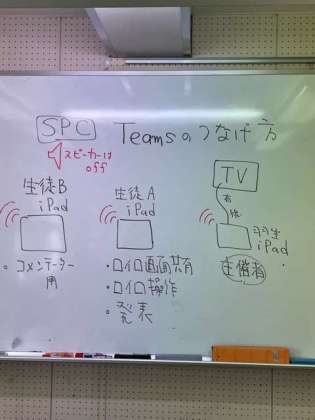 SPC Teamsのつなげ方
スピーカーは
off
生徒B
iPad
・コメンテーター
用
生徒A
iPad
・ロイロ画面共有
・ロイロ操作
・発表
TV
有
線
iPad
主催者